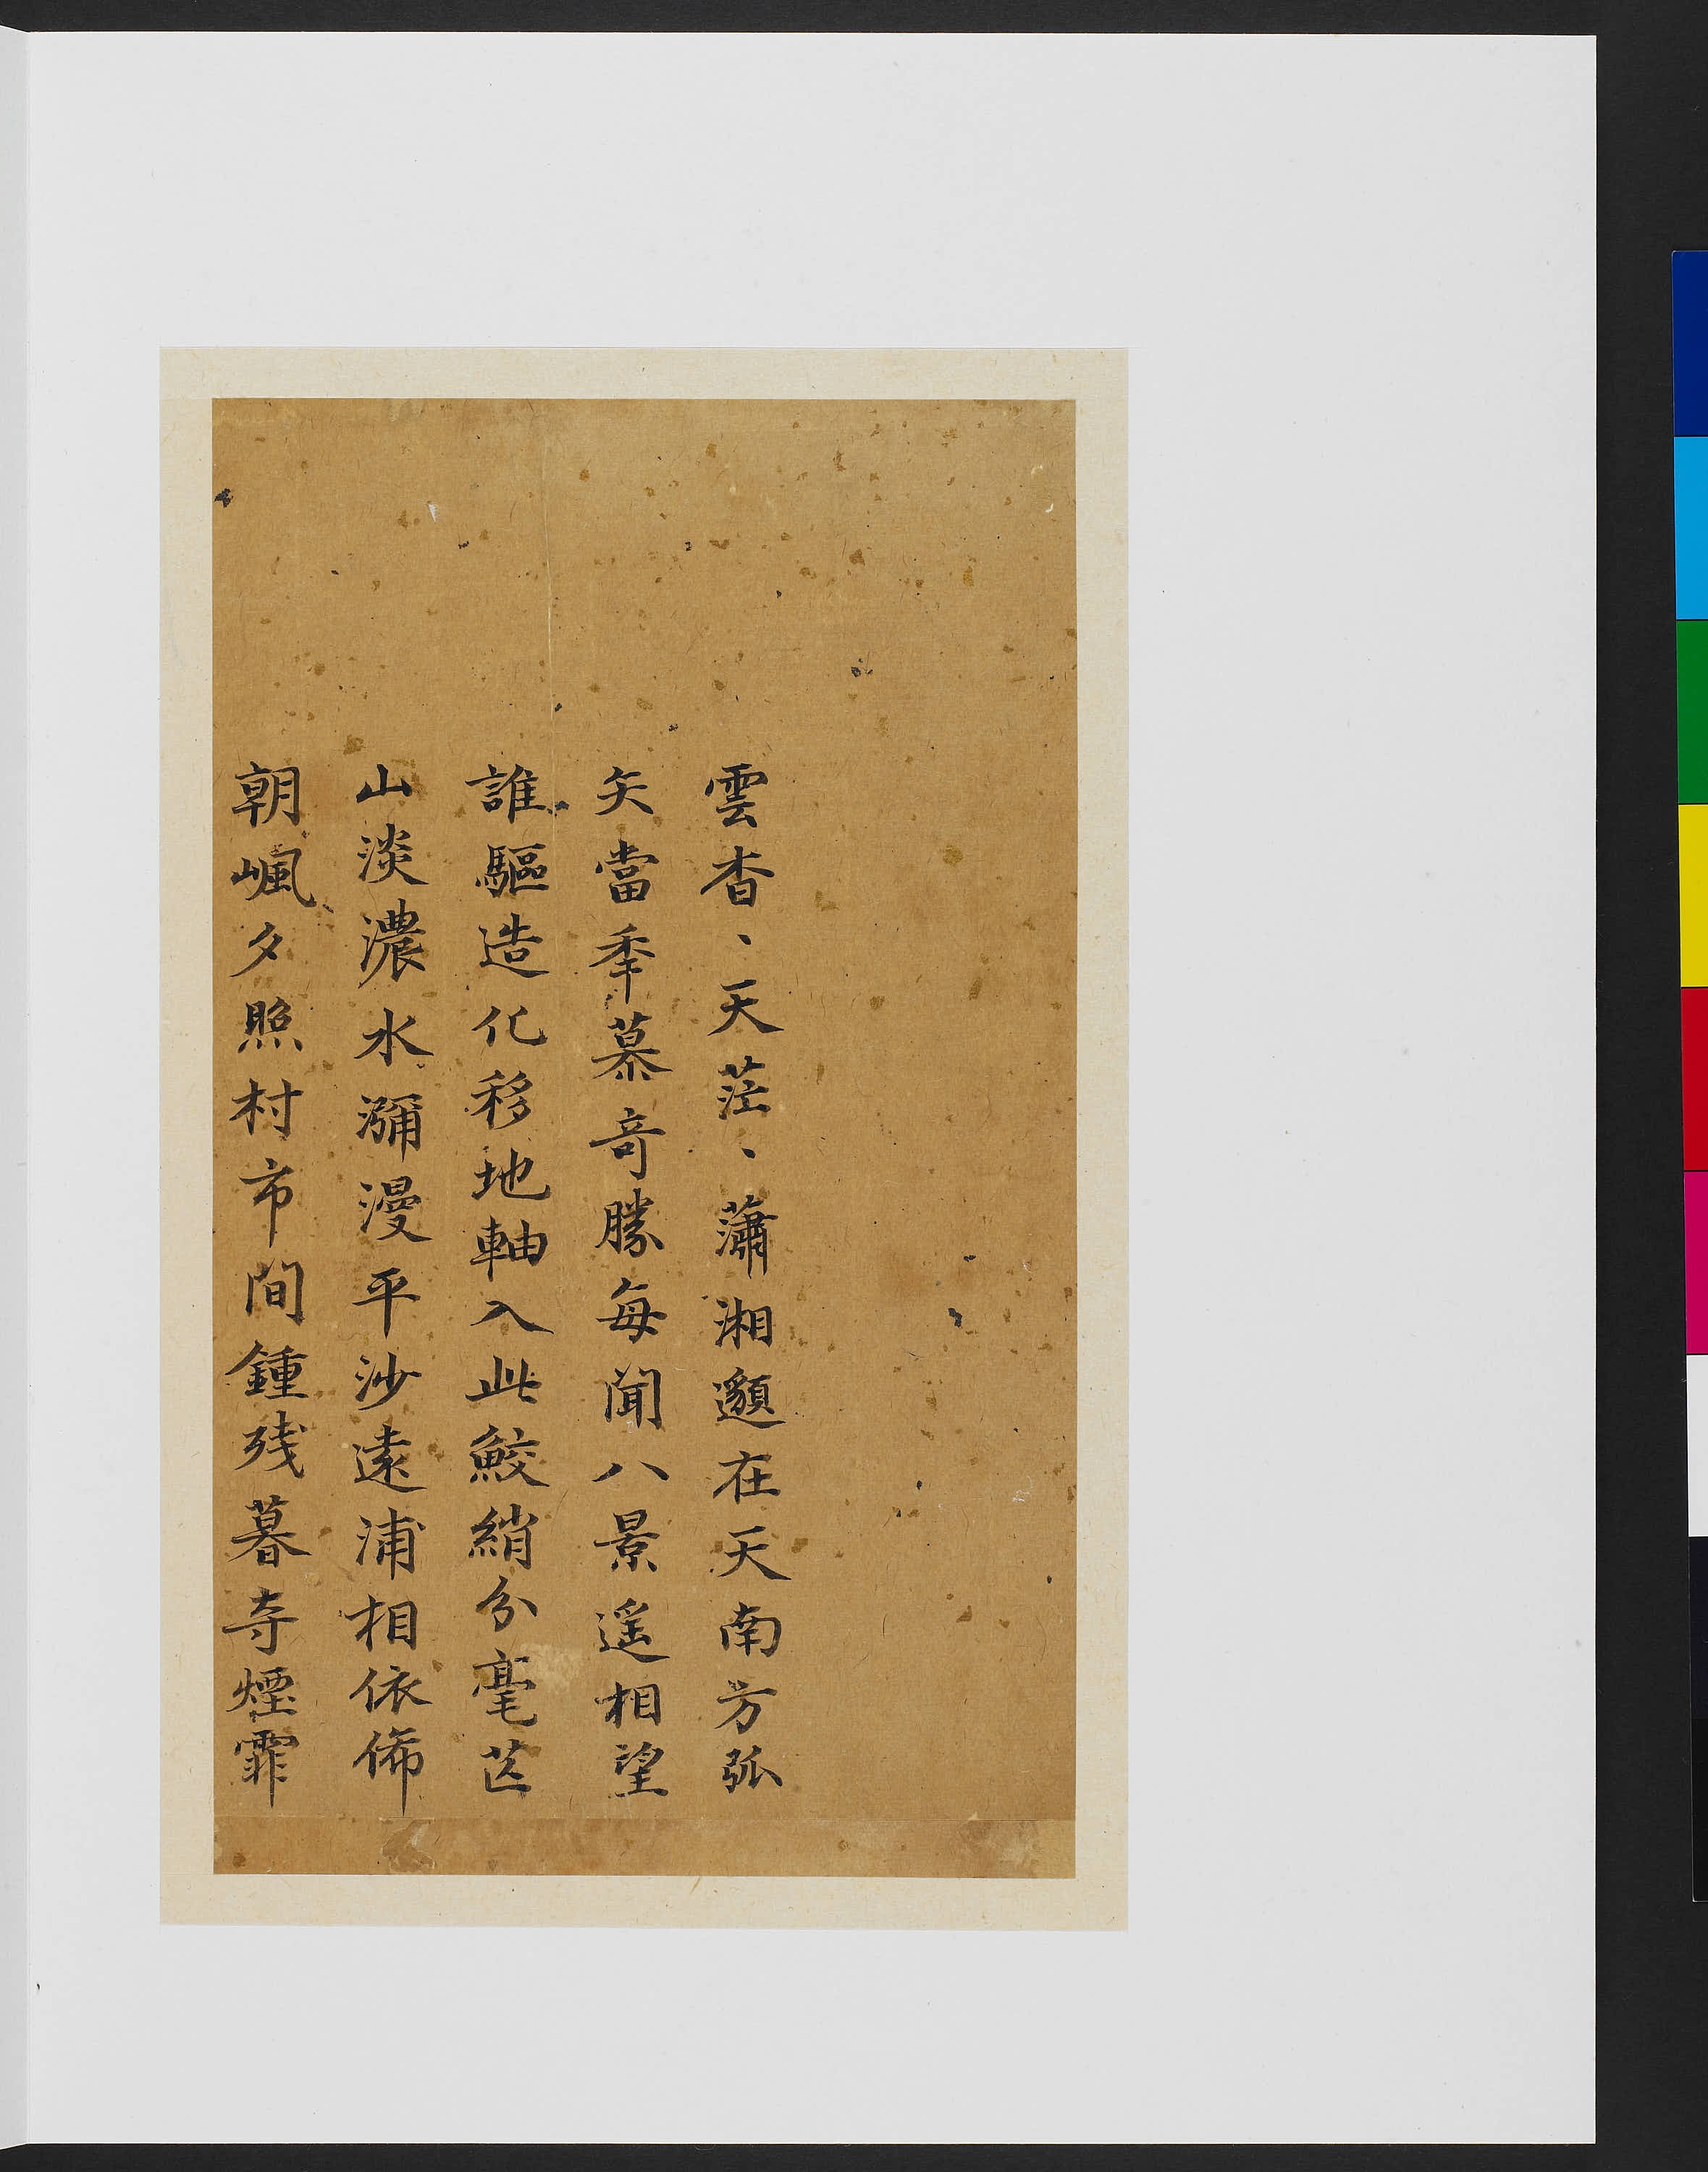 雲杳〻天茫〻瀟湘邈在天南方弧
矢當季慕奇勝每聞八景遥相望
誰驅造化移地軸入此鮫綃分毫芒
山淡濃水瀰漫平沙遠浦相依俙
朝嵐夕照村市間鍾残暮寺煙霏